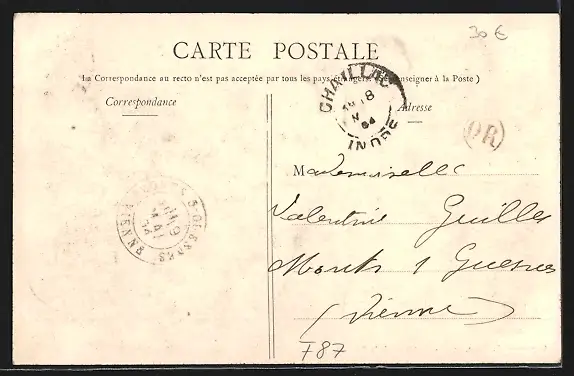 30 €
CARTE POSTALE
La Correspondance au recto n'est pas acceptée par tous les pays étrangers. (Se renseigner à la Poste)
Correspondance
Adresse
CHAILLAC
18
04
INDRE
OR
Mademoiselle
Valentine Guilles
Monts s Guesnes
(Vienne)
MONTS-S-GUESNES
19
MAI
04
VIENNE
T87